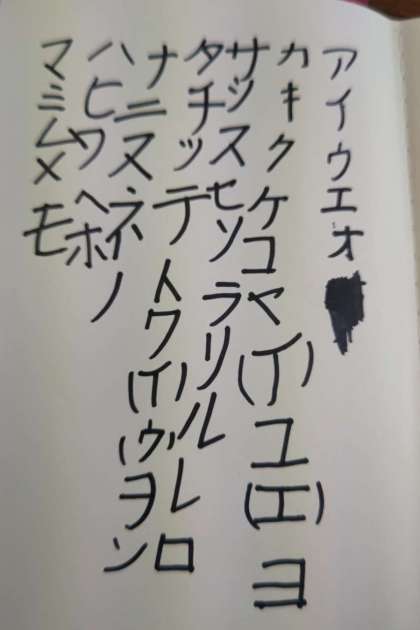 アイウエオ
カキクケコヤ(イ)ユ(エ)ヨ
サシスセソラリルレロ
タチツテトワ(イ)(ウ)ヲン
ナニヌネノ
ハヒワヘホ
マミムメモ